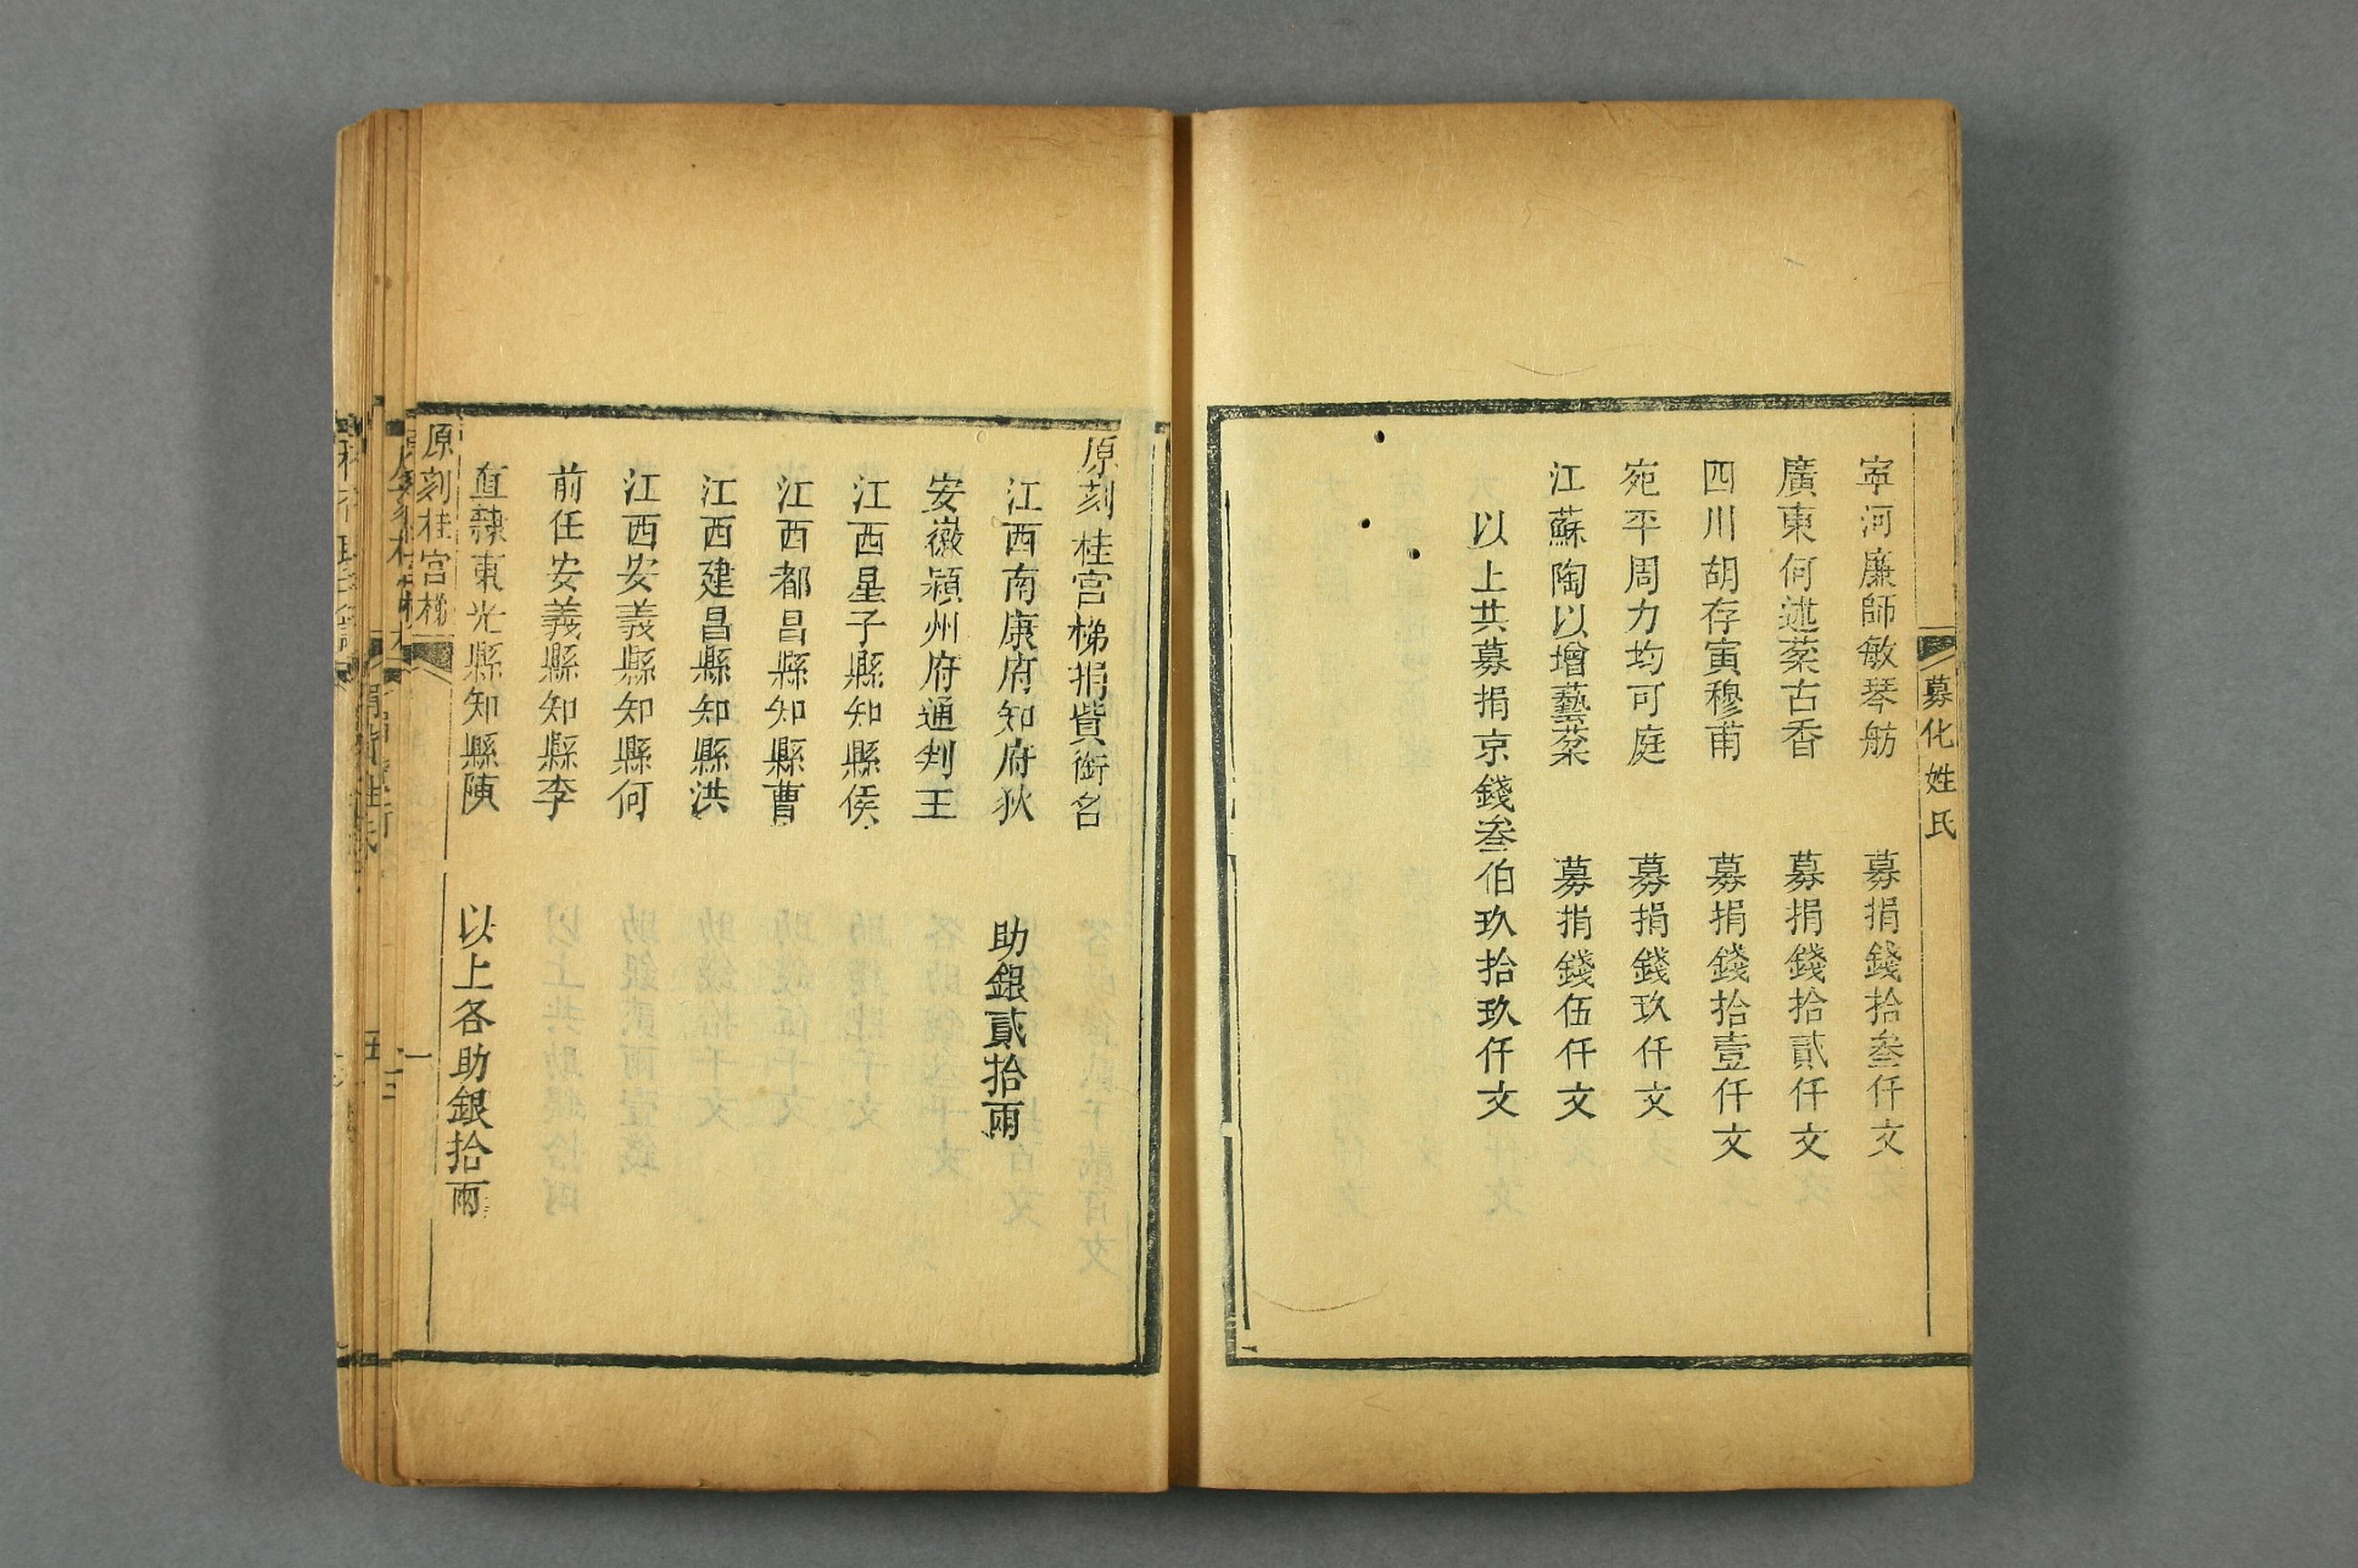 寗河廉師敏琴舫 募捐錢拾叁仟文
廣東何述菜古香 募捐錢拾貳仟文
四川胡存寅穆甫 募捐錢拾壹仟文
宛平周力均可庭 募捐錢玖仟文
江蘇陶以增藝棻 募捐錢伍仟文
以上共募捐京錢叁伯玖拾玖仟文
募化姓氏
原刻桂宮梯捐貲銜名
江西南康府知府狄 助銀貳拾兩
安徽潁州府通判王
江西星子縣知縣侯
江西都昌縣知縣曹
江西建昌縣知縣洪
江西安義縣知縣何
前任安義縣知縣李
直隸東光縣知縣陳 以上各助銀拾兩
原刻桂宮梯
一